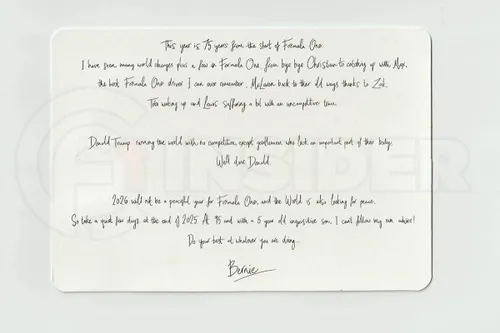 This year is 75 years from the start of Formula One.
I have seen many world changes plus a few in Formula One, from bye bye Christian to catching up with Max,
the best Formula One driver I can ever remember. McLaren back to their old ways thanks to Zak.
Toto waking up and Lewis suffering a bit with an uncompetitive team.
Donald Trump running the world with no competitive, except gentlemen who lack an important part of their body,
Well done Donald.
2026 will not be a peaceful year for Formula One, and the World is also looking for peace.
So take a quiet few days at the end of 2025. At 95 and with a 5 year old inquisitive son, I can't follow my own advice!
Do your best at whatever you are doing...
Bernie
INSIDER